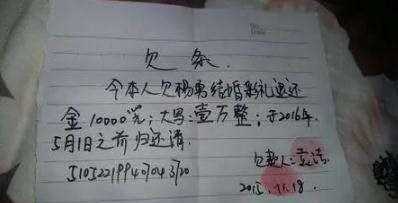 欠条.
今本人欠杨勇结婚彩礼退还
金10000元;大写:壹万整;于2016年
5月1日之前归还清.
欠款人:
2015.11.18.